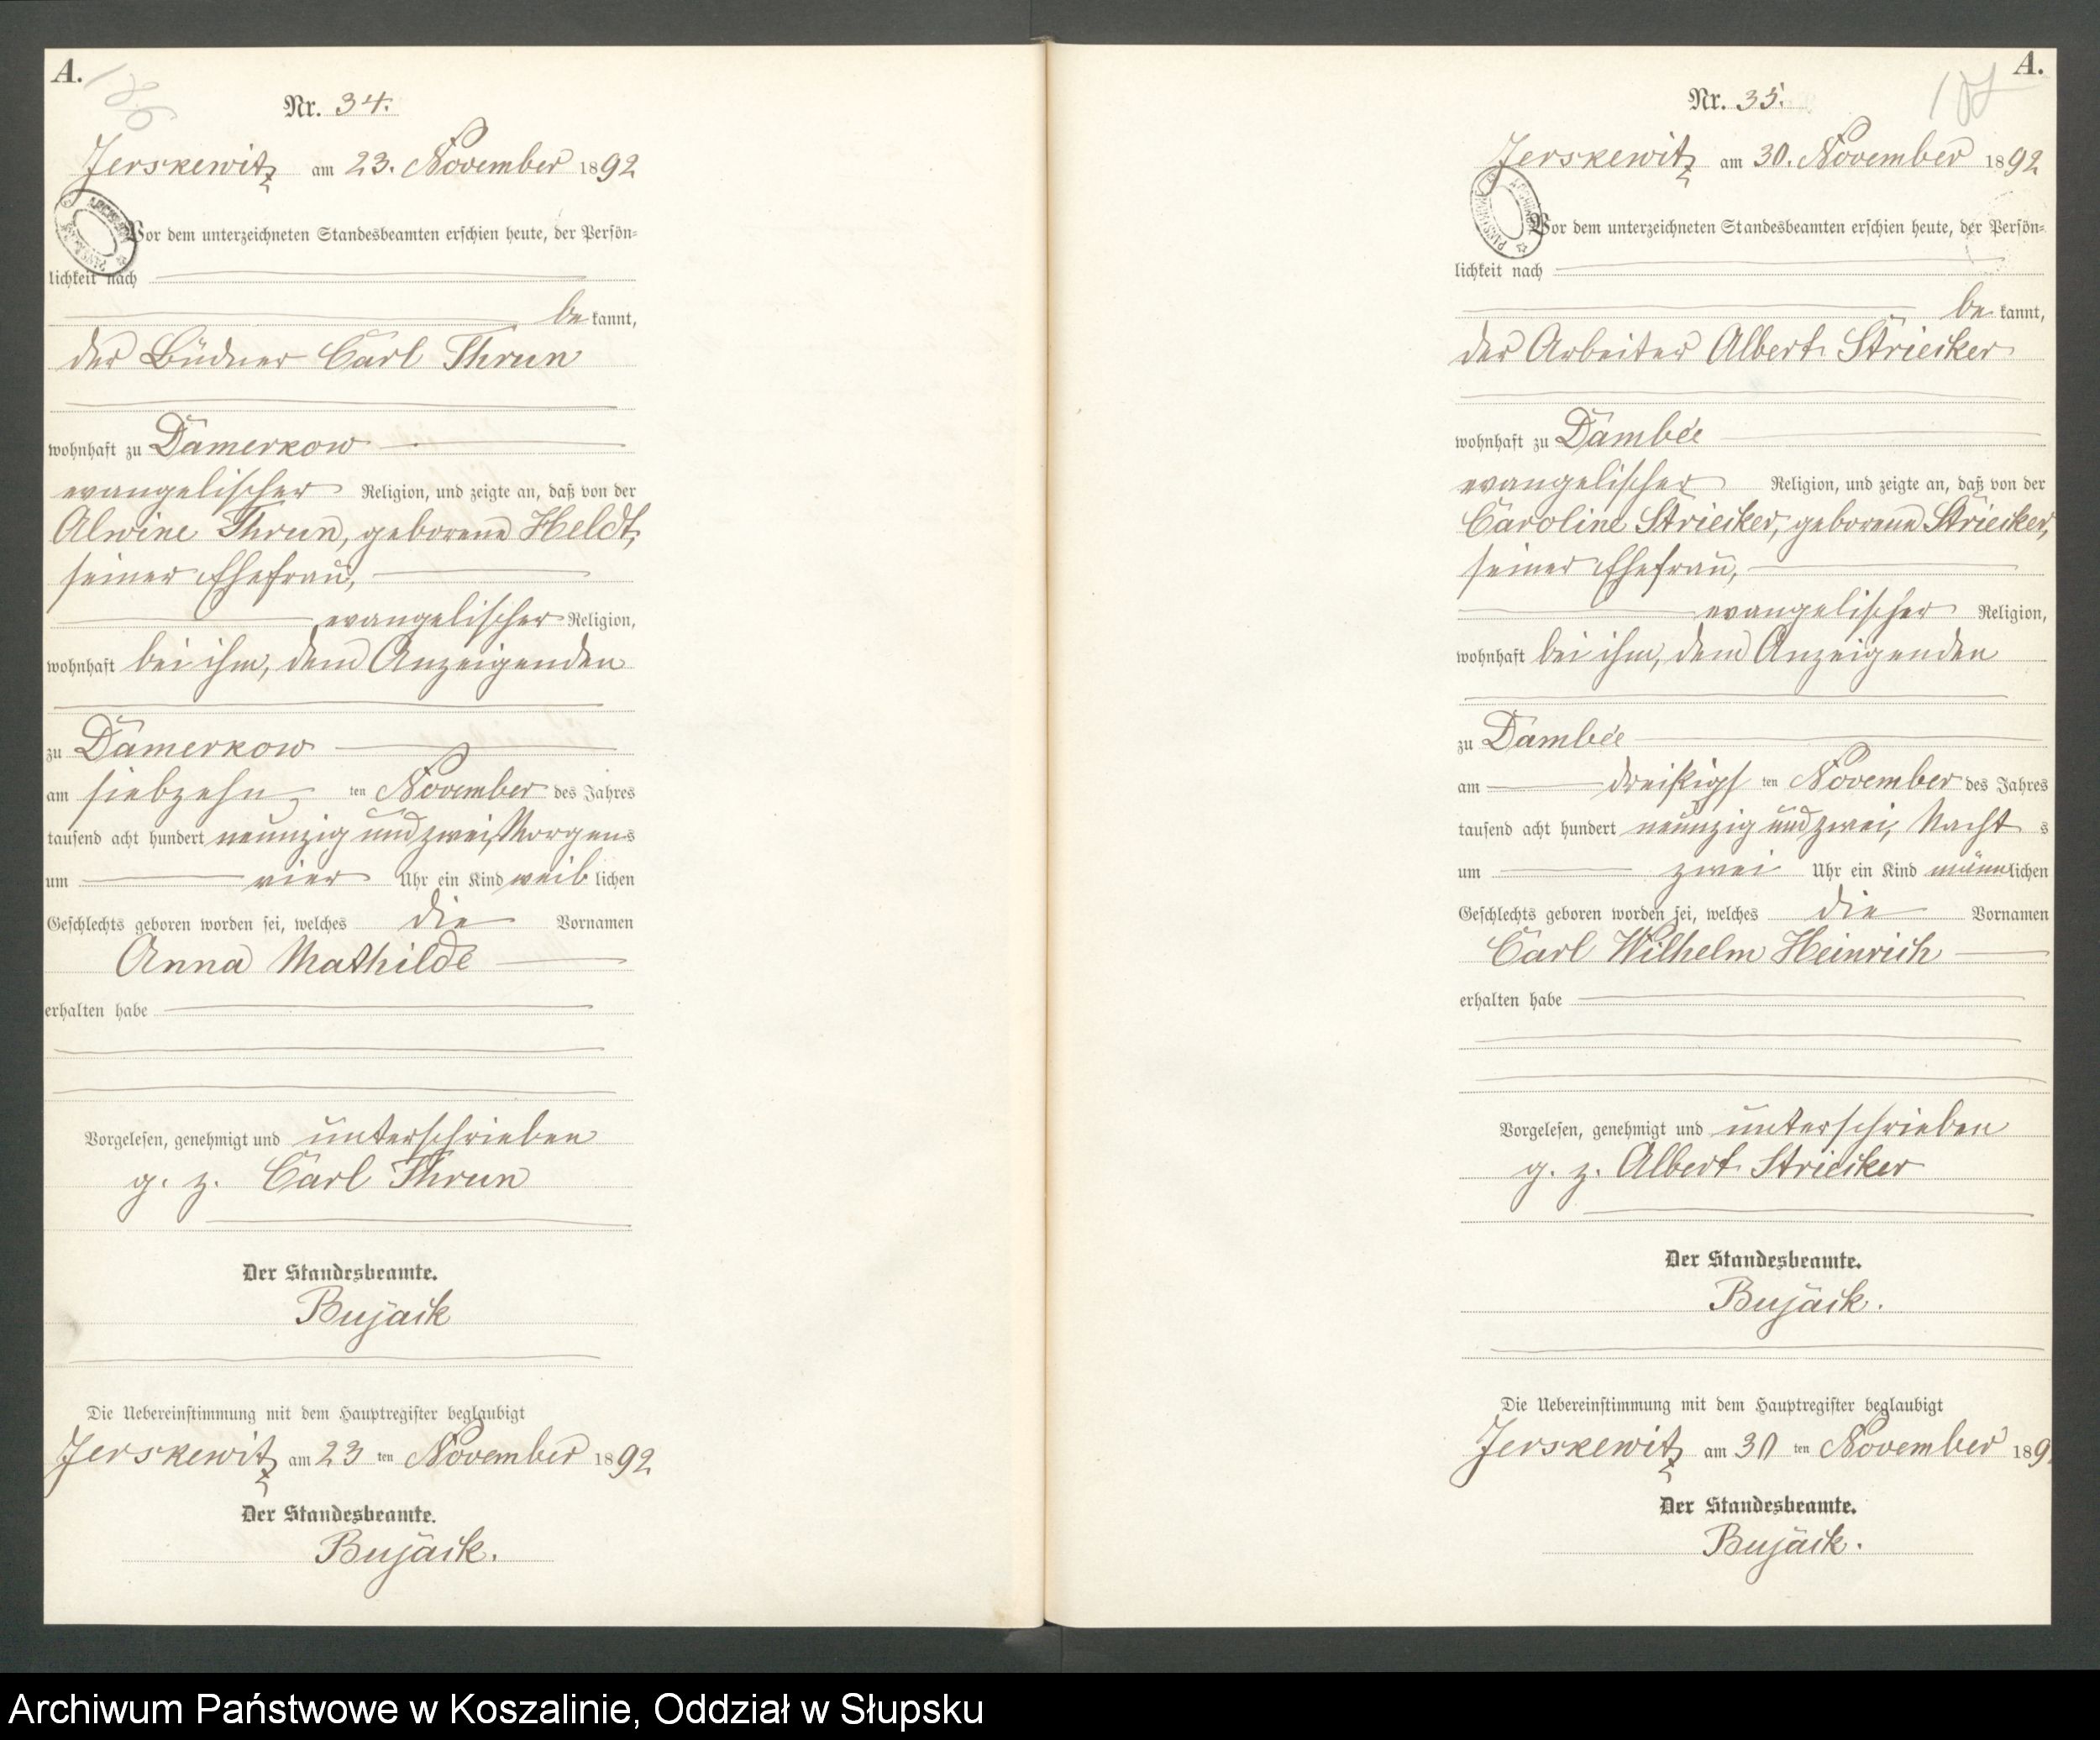 A.
Nr. 34.
Jerskewitz am 23. November 1892
Vor dem unterzeichneten Standesbeamten erschien heute, der Persön-
lichkeit nach
be kannt,
der Büdner Carl Thrun
wohnhaft zu Damerkow
evangelischer Religion, und zeigte an, daß von der
Alwine Thrun, geborene Heldt,
seiner Ehefrau,
evangelischer Religion,
wohnhaft bei ihm, dem Anzeigenden
zu Damerkow
am siebzehn ten November des Jahres
tausend acht hundert neunzig und zwei, Morgens
um vier Uhr ein Kind weib lichen
Geschlechts geboren worden sei, welches die Vornamen
Anna Mathilde
erhalten habe
Vorgelesen, genehmigt und unterschrieben
g. z. Carl Thrun
Der Standesbeamte.
Bujack
Die Uebereinstimmung mit dem Hauptregister beglaubigt
Jerskewitz am 23 ten November 1892
Der Standesbeamte.
Bujack.
A.
Nr. 35.
Jerskewitz am 30. November 1892
Vor dem unterzeichneten Standesbeamten erschien heute, der Persön-
lichkeit nach
be kannt,
der Arbeiter Albert Striecker
wohnhaft zu Dambée
evangelischer Religion, und zeigte an, daß von der
Caroline Striecker, geborene Striecker,
seiner Ehefrau,
evangelischer Religion,
wohnhaft bei ihm, dem Anzeigenden
zu Dambée
am dreißigs ten November des Jahres
tausend acht hundert neunzig und zwei, Nacht s
um zwei Uhr ein Kind männlichen
Geschlechts geboren worden sei, welches die Vornamen
Carl Wilhelm Heinrich
erhalten habe
Vorgelesen, genehmigt und unterschrieben
g. z. Albert Striecker
Der Standesbeamte.
Bujack.
Die Uebereinstimmung mit dem Hauptregister beglaubigt
Jerskewitz am 30 ten November 189
Der Standesbeamte.
Bujack.
Archiwum Państwowe w Koszalinie, Oddział w Słupsku